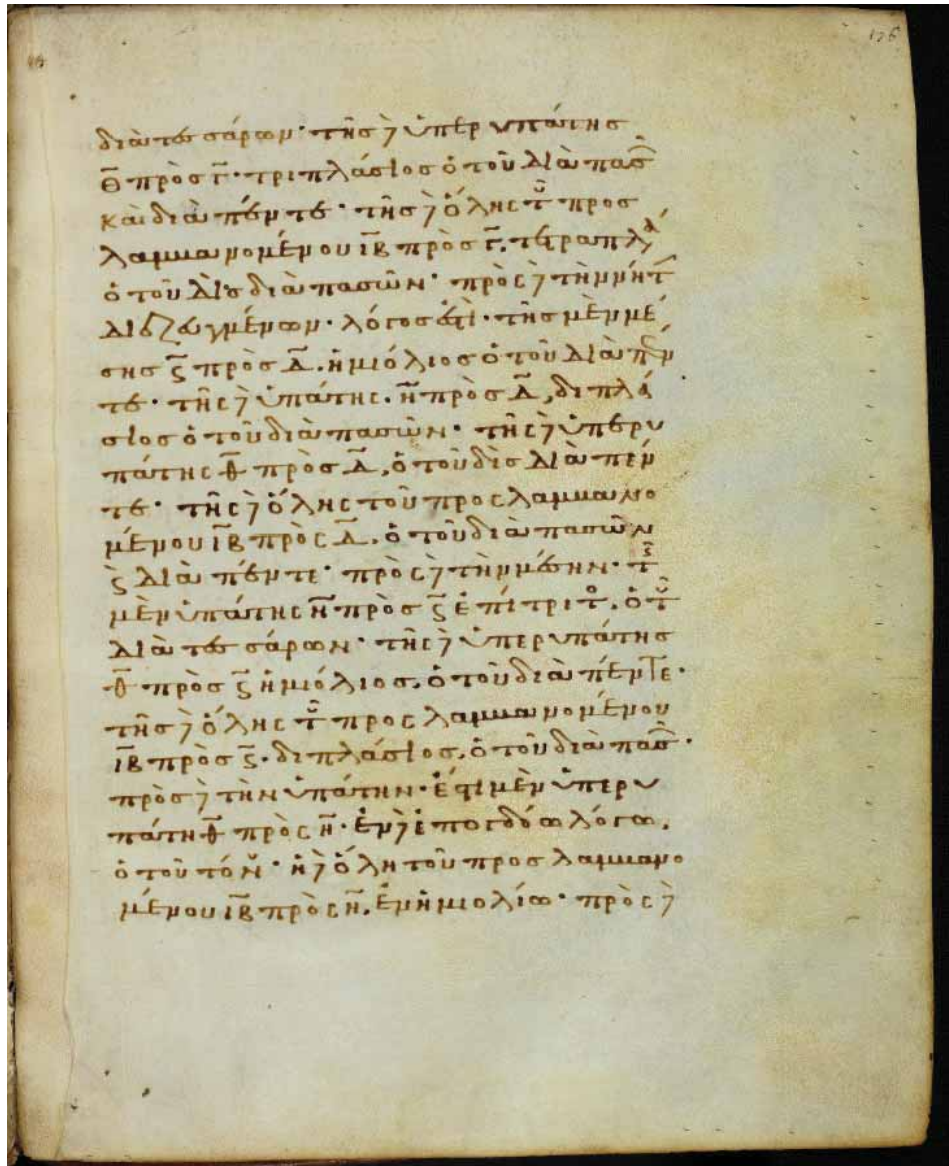 126
διὰ τεσσάρων· τῆς δ ὑπερυπάτης
θ̅ πρὸς γ̅· τριπλάσιος ὁ τοῦ διὰ πασῶ
καὶ διὰ πέντε· τῆς δ ὅλης τοῦ προσ
λαμβανομένου ιβ̅ πρὸς γ̅, τετραπλά
ὁ τοῦ δὶς διὰ πασῶν· πρὸς δ τὴν νήτ
διεζευγμένων· λόγος ἐστὶ· τῆς μὲν μέ
σης ϛ̅ πρὸς δ̅. ἡμιόλιος ὁ τοῦ διὰ πέν
τε· τῆς δ ὑπάτης. η̅ πρὸς δ̅, διπλά
σιος ὁ τοῦ διὰ πασῶν· τῆς δ ὑπερυ
πάτης θ̅ πρὸς δ̅, ὁ τοῦ δὶς διὰ πέν
τε· τῆς δ ὅλης τοῦ προσλαμβανο
μένου ιβ̅ πρὸς δ̅. ὁ τοῦ διὰ πασῶν
ϗ διὰ πέντε· πρὸς δ τὴν μέσην· τῆς
μὲν ὑπάτης η̅ πρὸς ϛ̅ ἐπίτριτο. ὁ τοῦ
διὰ τεσσάρων· τῆς δ ὑπερυπάτης
θ̅ πρὸς ϛ̅ ἡμιόλιος. ὁ τοῦ διὰ πέντε·
τῆς δ ὅλης τοῦ προσλαμβανομένου
ιβ̅ πρὸς ϛ̅· διπλάσιος, ὁ τοῦ διὰ πασ·
πρὸς δ τὴν ὑπάτην· ἔστι μὲν ὑπερυ
πάτη θ̅ πρὸς η̅· ἐν δ ἐπογδόω λόγω,
ὁ τοῦ τόν· ἡ δ ὅλη τοῦ προσλαμβανο
μένου ιβ̅ πρὸς η̅, ἐν ἡμιολίω· πρὸς δ